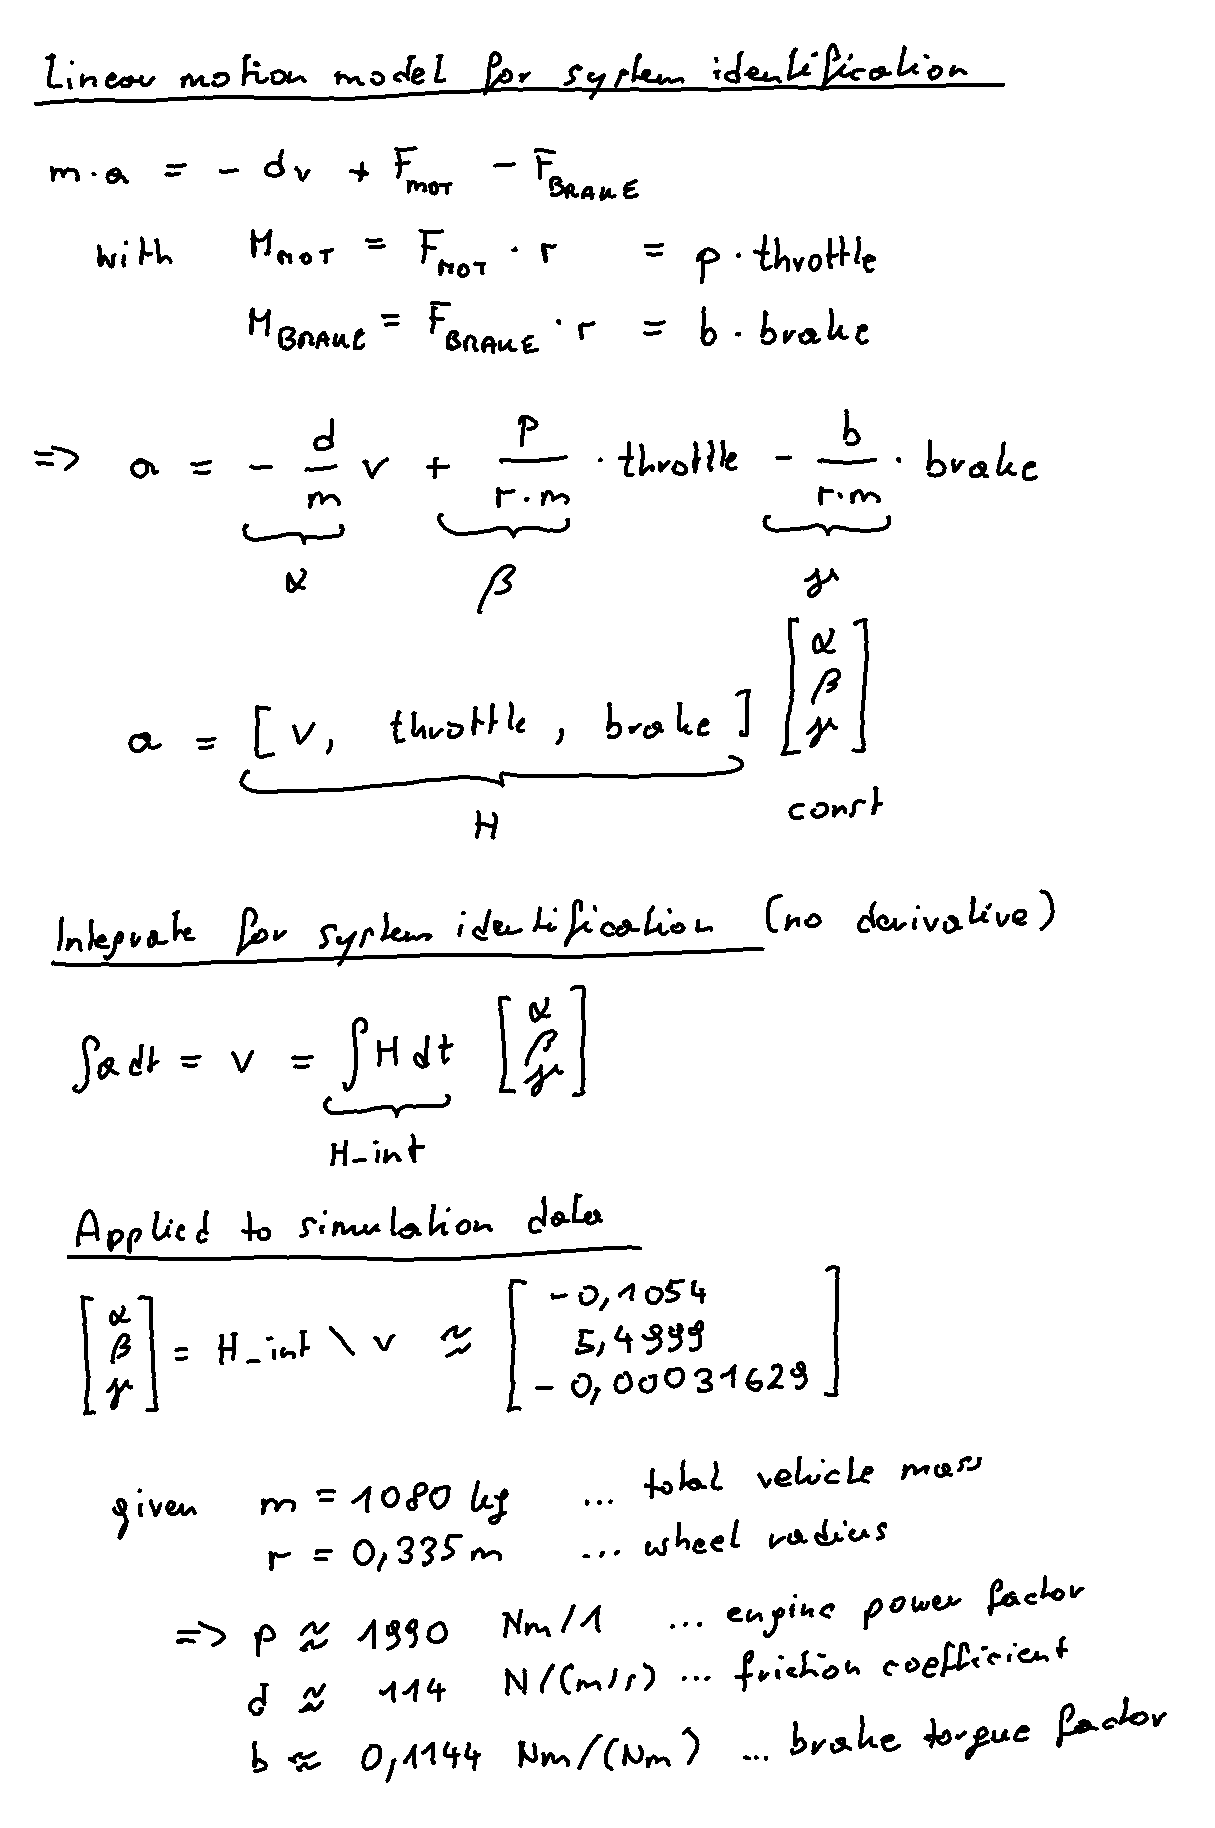 Linear motion model for system identification
m·a = - dv + F_MOT - F_BRAKE
with M_MOT = F_MOT · r = p · throttle
M_BRAKE = F_BRAKE · r = b · brake
=> a = - d/m v + p/(r·m) · throttle - b/(r·m) · brake
α β γ
a = [v, throttle, brake] [α β γ]
H const
Integrate for system identification (no derivative)
∫a dt = v = ∫H dt [α β γ]
H_int
Applied to simulation data
[α β γ] = H_int \ v ≈ [-0,1054 5,4999 -0,00031629]
given m = 1080 kg ... total vehicle mass
r = 0,335 m ... wheel radius
=> p ≈ 1990 Nm/1 ... engine power factor
d ≈ 114 N/(m/s) ... friction coefficient
b ≈ 0,1144 Nm/(Nm) ... brake torque factor